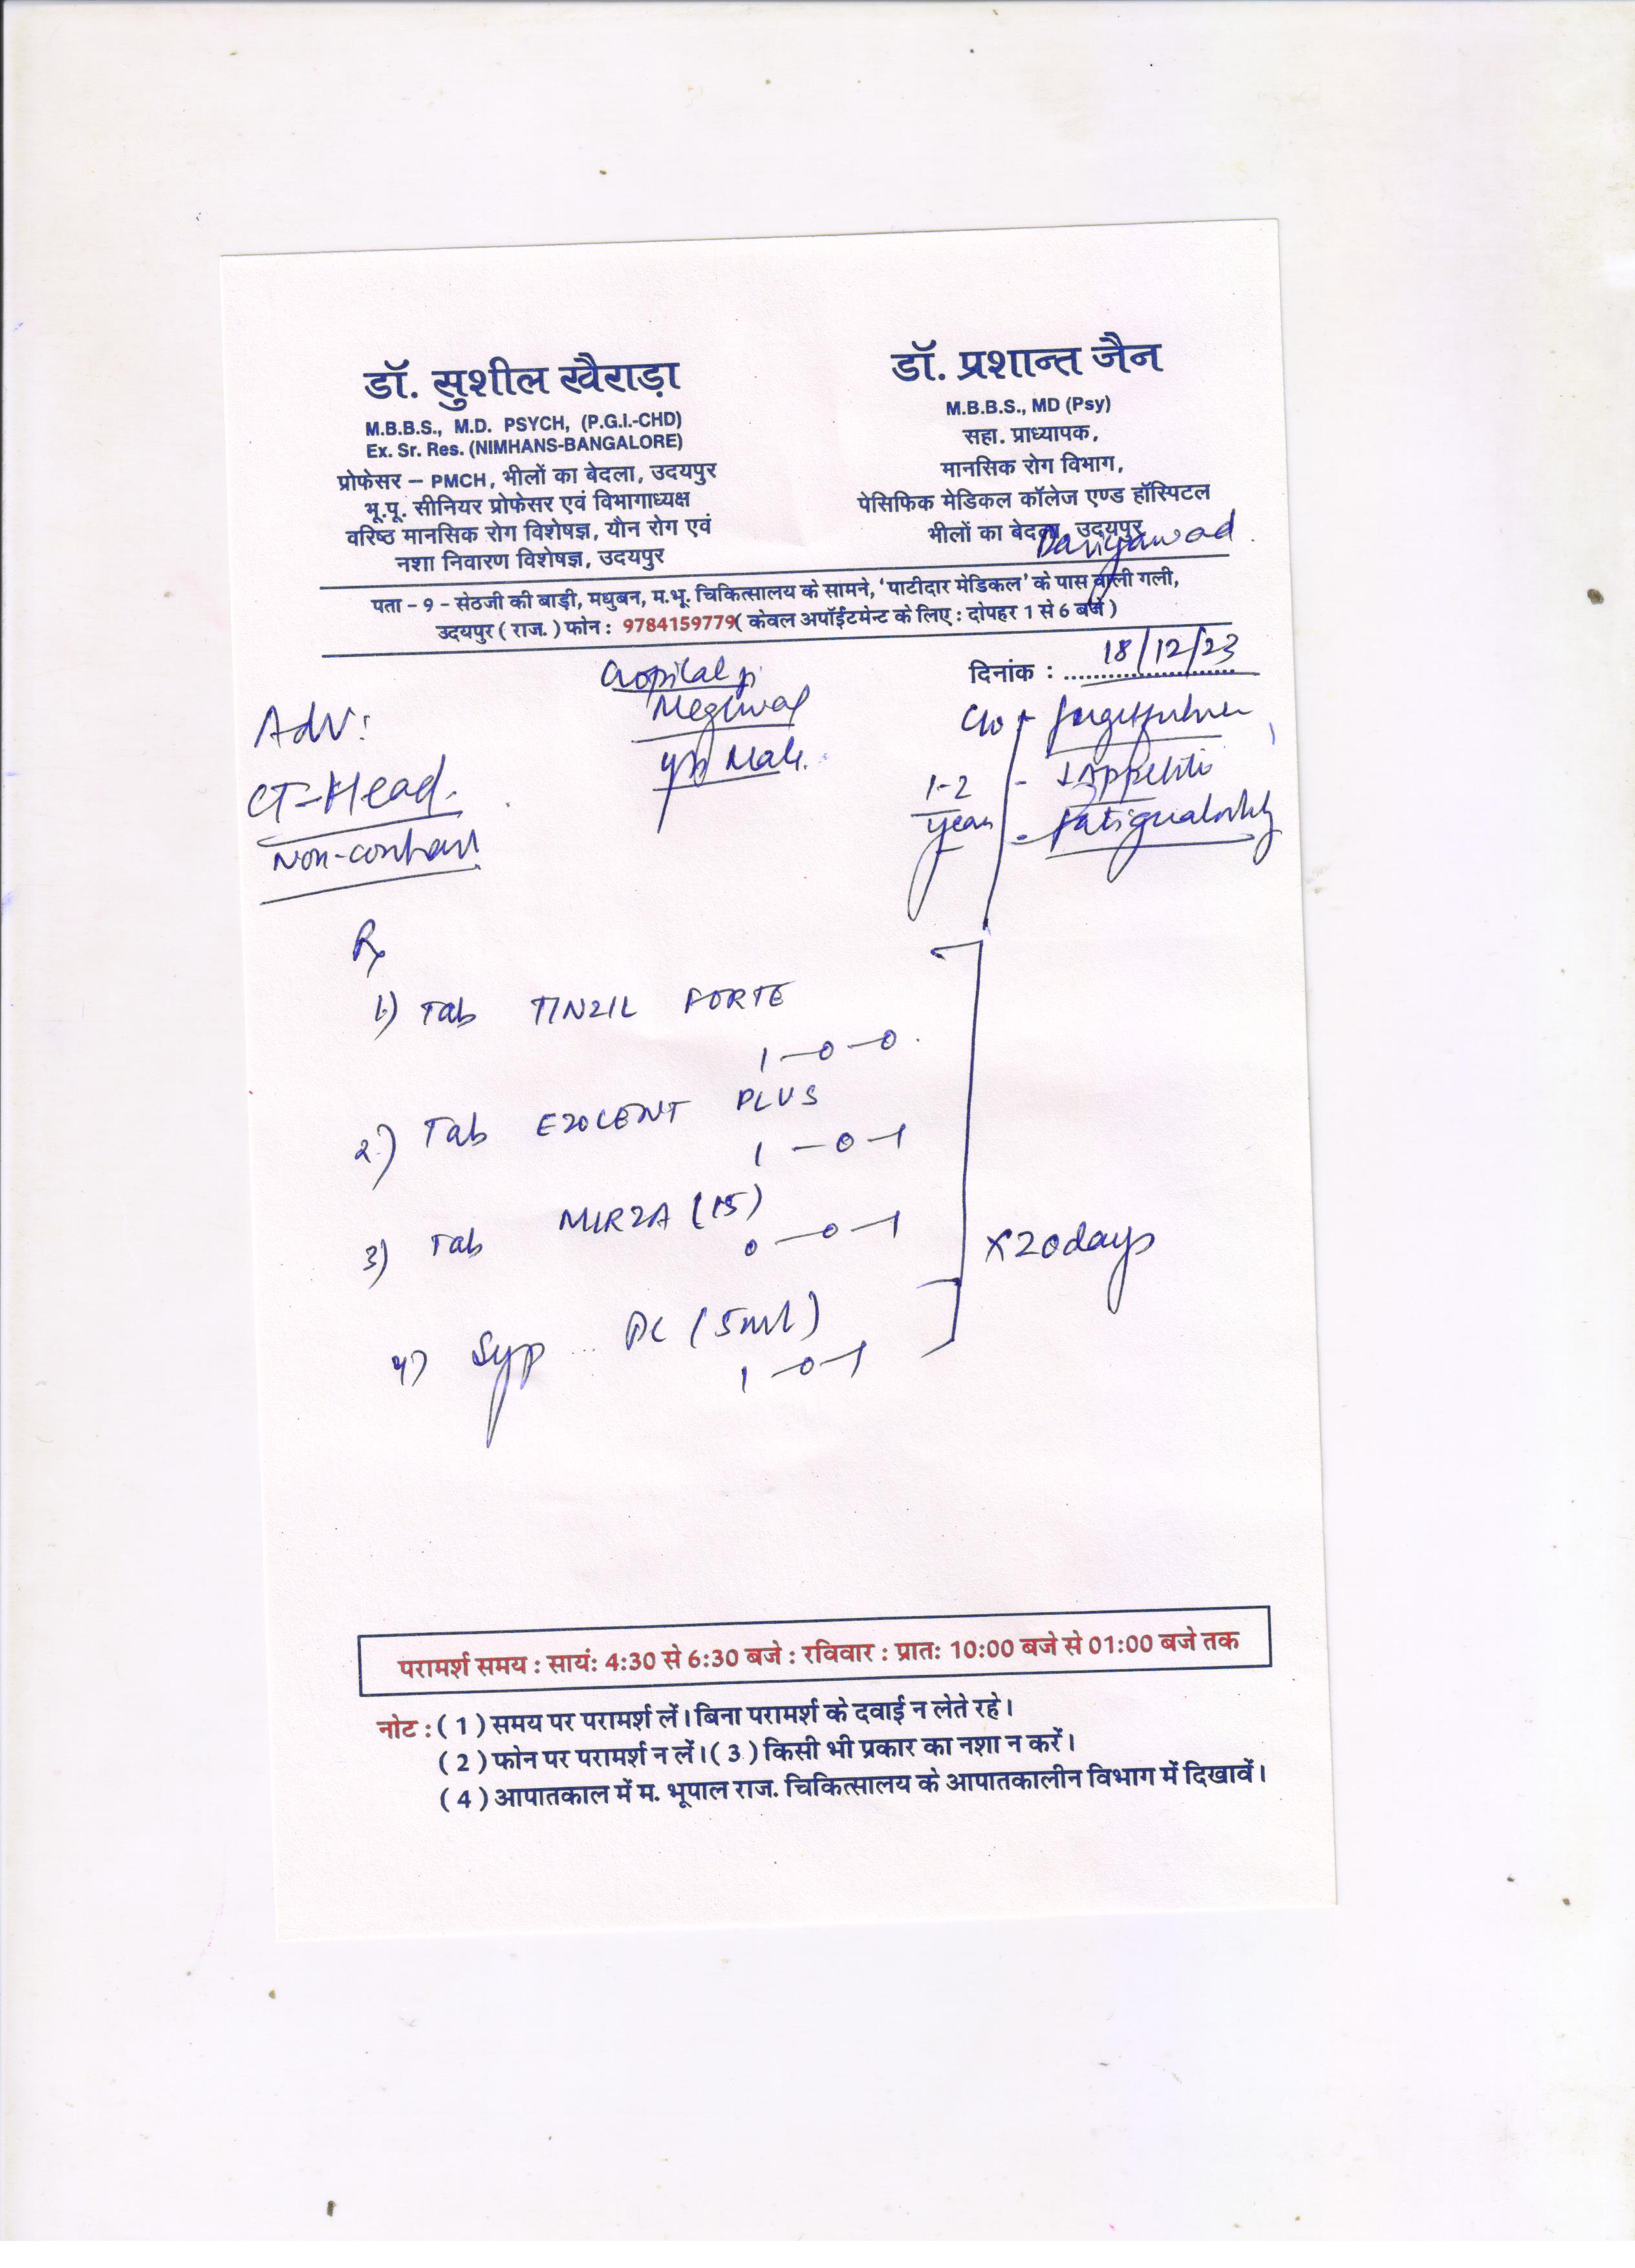 डॉ. सुशील खैराड़ा
M.B.B.S., M.D. PSYCH, (P.G.I.-CHD)
Ex. Sr. Res. (NIMHANS-BANGALORE)
प्रोफेसर – PMCH, भीलों का बेदला, उदयपुर
भू.पू. सीनियर प्रोफेसर एवं विभागाध्यक्ष
वरिष्ठ मानसिक रोग विशेषज्ञ, यौन रोग एवं
नशा निवारण विशेषज्ञ, उदयपुर
डॉ. प्रशान्त जैन
M.B.B.S., MD (Psy)
सहा. प्राध्यापक,
मानसिक रोग विभाग,
पेसिफिक मेडिकल कॉलेज एण्ड हॉस्पिटल
भीलों का बेदला, उदयपुर
पता - 9 - सेठजी की बाड़ी, मधुबन, म.भू. चिकित्सालय के सामने, 'पाटीदार मेडिकल' के पास वाली गली,
उदयपुर ( राज. ) फोन : 9784159779( केवल अपॉईंटमेन्ट के लिए : दोपहर 1 से 6 बजे )
दिनांक : 18/12/23
Meghwal
Male
Adv:
CT-Head
Non-contrast
C/o
- ↓Appetite
1-2
year
- fatiguability
Rx
1) Tab TINZIL FORTE
1-0-0
2) Tab EZOCENT PLUS
1-0-1
3) Tab MIRZA (15)
0-0-1
4) Syp (5ml)
1-0-1
x 20 days
परामर्श समय : सायं: 4:30 से 6:30 बजे : रविवार : प्रात: 10:00 बजे से 01:00 बजे तक
नोट : ( 1 ) समय पर परामर्श लें। बिना परामर्श के दवाई न लेते रहे।
( 2 ) फोन पर परामर्श न लें। ( 3 ) किसी भी प्रकार का नशा न करें।
( 4 ) आपातकाल में म. भूपाल राज. चिकित्सालय के आपातकालीन विभाग में दिखावें।